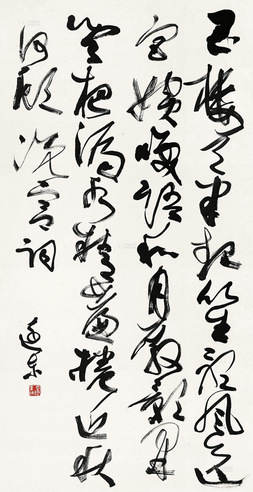 玉楼天半起笙歌风送
宫嫔笑语和月殿影开
闻夜漏水精帘卷近秋
河顾况宫词